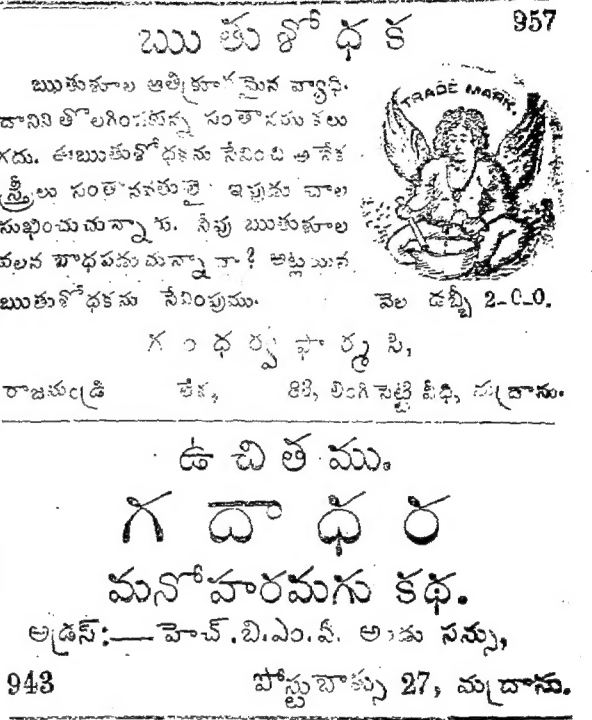 957
ఋతుశోధక
ఋతుశూల అతిక్రూరమైన వ్యాధి.
దానిని తొలగించుకొన్న సంతానము కలు
గదు. ఈఋతుశోధకను సేవించి అనేక
స్త్రీలు సంతానవతులై ఇప్పుడు చాల
సుఖించుచున్నారు. నీవు ఋతుశూల
వలన బాధపడుచున్నావా? అట్లయిన
ఋతుశోధకను సేవింపుము.
TRADE MARK.
వెల డబ్బీ 2-0-0.
గంధర్వఫార్మసి,
రాజమండ్రి లేక, లింగిసెట్టి వీధి, మద్రాసు.
ఉచితము.
గదాధర
మనోహరమగు కథ.
అడ్రస్:— హెచ్.బి.ఎం.వీ. అండు సన్సు,
943 పోస్టుబాక్సు 27, మద్రాసు.